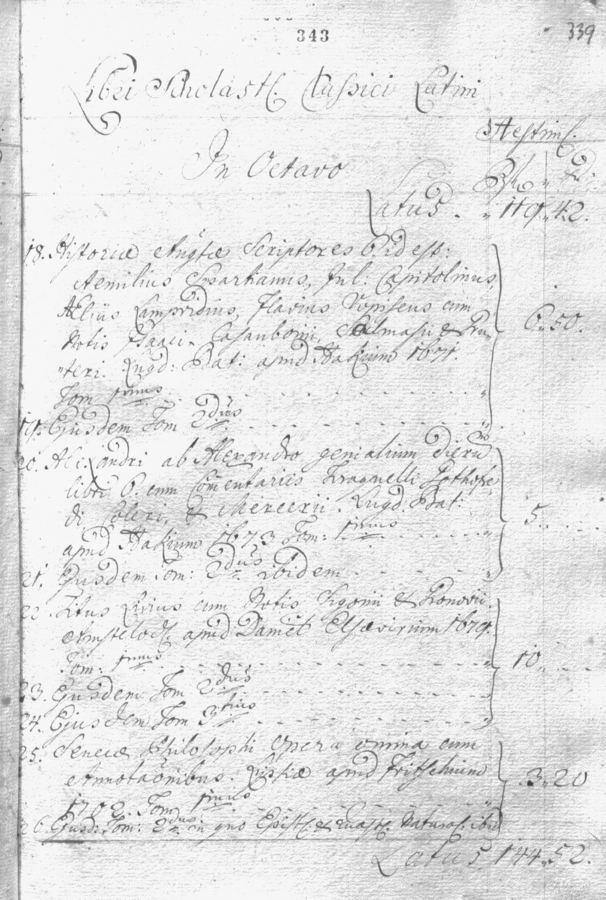 343
339
Libri Scholastc. Classici Latini
Aestim.
In Octavo
Rfl. „ d.
Latus. „ 119„42.
18. Historiæ Augtæ Scriptores 6. id est:
Aemilius Spartianus, Jul. Capitolinus
Aelius Lampridius, Flavius Vopiscus cum
Notis Isaaci Casauboni, Salmasii & Gru„ 6„50.
„teri. Lugd: Bat: apud Hakium 1671.
Tom primus
19. Ejusdem Tom 2dus
20. Alexandri ab Alexandro genialium dieru
libri 6. cum Comentariis Tiraquelli, Gothofre„
di Coleri, & Mercerii. Lugd. Bat. 5„
apud Hakium 1673 Tom: primus
21. Ejusdem Tom: 2dus ibidem
22. Titus Livius cum Notis Sigonii & Gronovii.
Amstelod. apud Daniel Elsevirium 1679.
Tom: primus 10„
23. Ejusdem Tom 2dus
24. Ejusdem Tom 3tius
25. Senecæ Philosophi Opera omnia cum
Annotaōnibus. Lipsiæ apud Fritschium 3„20
1702. Tom primus
26. Ejusd: Tom: 2dus in quo Epist. & Quæst. Natural. ibid
Latus 144„52.